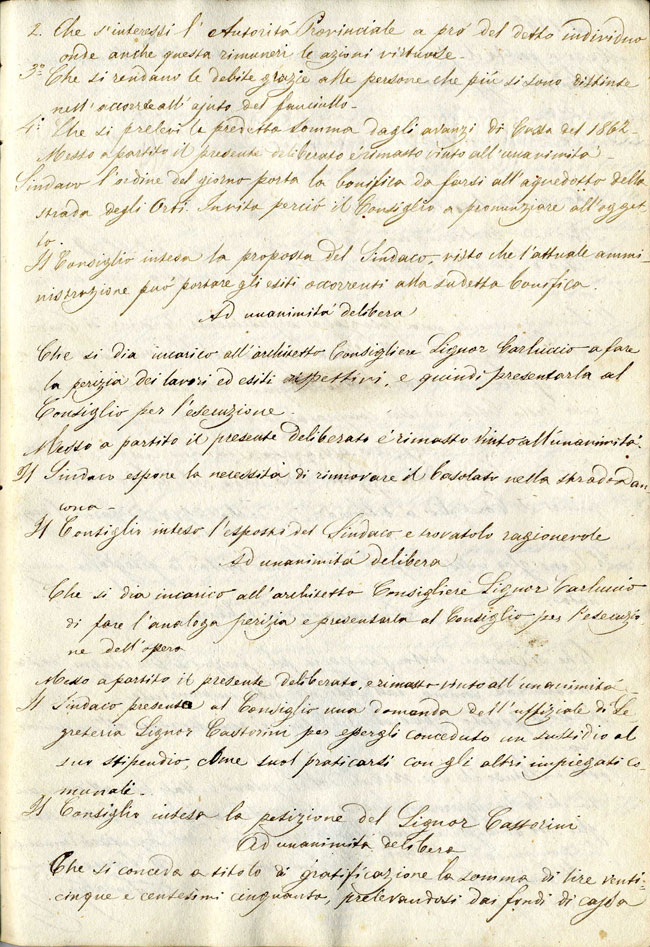 2. Che s'interessi l'Autorità Provinciale a prò del detto individuo
onde anche questa rimuneri le azioni virtuose.
3.° Che si rendano le debite grazie alle persone che più si sono distinte
nell'accorre all'ajuto del fanciullo.
4.° Che si prelevi la predetta somma dagli avanzi di Cassa del 1862.
Messo a partito il presente deliberato è rimasto vinto all'unanimità.
Sindaco l'ordine del giorno porta la bonifica da farsi all'aquedotto della
strada degli Orti. Invita perciò il Consiglio a pronunziare all'ogget-
to.
Il Consiglio intesa la proposta del Sindaco, visto che l'attuale ammi-
nistrazione può portare gli esiti occorrenti alla sudetta bonifica.
Ad unanimità delibera
Che si dia incarico all'architetto Consigliere Signor Carluccio a fare
la perizia dei lavori ed esiti rispettivi, e quindi presentarla al
Consiglio per l'esecuzione.
Messo a partito il presente deliberato è rimasto vinto all'unanimità.
Il Sindaco espone la necessità di rinnovare il basolato nella strada an-
cona.
Il Consiglio inteso l'esposto del Sindaco e trovatolo ragionevole
Ad unanimità delibera
Che si dia incarico all'architetto Consigliere Signor Carluccio
di fare l'analoga perizia e presentarla al Consiglio per l'esecuzio-
ne dell'opera
Messo a partito il presente deliberato, è rimasto vinto all'unanimità.
Il Sindaco presenta al Consiglio una domanda dell'uffiziale di Se-
greteria Signor Castorini per essergli conceduto un sussidio al
suo stipendio, come suol praticarsi con gli altri impiegati co-
munali.
Il Consiglio intesa la petizione del Signor Castorini
Ad unanimità delibera
Che si conceda a titolo di gratificazione la somma di lire venti-
cinque e centesimi cinquanta, prelevandosi dai fondi di cassa